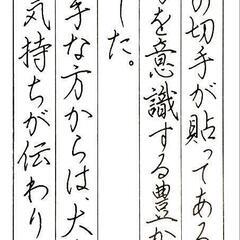 の切手が貼ってある
を意識する豊か
した。
手な方からは、大
気持ちが伝わり